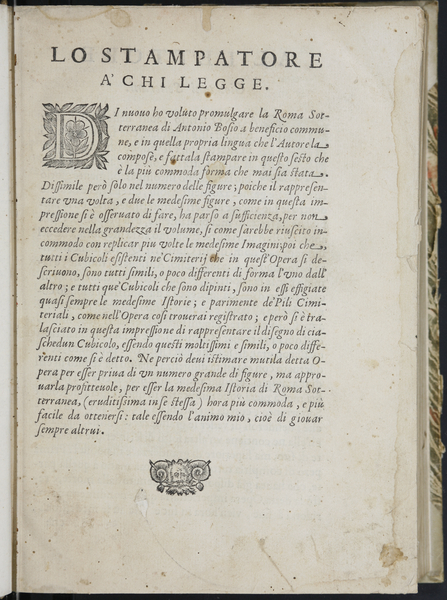 LO STAMPATORE
A' CHI LEGGE.
DI nuouo ho voluto promulgare la Roma Sot-
terranea di Antonio Bosio a beneficio commu-
ne, e in quella propria lingua che l'Autore la
compose, e fattala stampare in questo sesto che
è la più commoda forma che mai sia stata.
Dissimile però solo nel numero delle figure; poiche il rappresen-
tare vna volta, e due le medesime figure, come in questa im-
pressione si è osseruato di fare, ha parso a sufficienza, per non
eccedere nella grandezza il volume, si come sarebbe riuscito in-
commodo con replicar piu volte le medesime Imagini; poi che
tutti i Cubicoli esistenti ne' Cimiterij che in quest'Opera si de-
scriuono, sono tutti simili, o poco differenti di forma l'vno dall'
altro; e tutti que' Cubicoli che sono dipinti, sono in essi effigiate
quasi sempre le medesime Istorie; e parimente de' Pili Cimi-
teriali, come nell'Opera così trouerai registrato; e però si è tra-
lasciato in questa impressione di rappresentare il disegno di cia-
schedun Cubicolo, essendo questi moltissimi e simili, o poco diffe-
renti come si è detto. Ne perciò deui istimare mutila detta O-
pera per esser priua di vn numero grande di figure, ma appro-
uarla profitteuole, per esser la medesima Istoria di Roma Sot-
terranea, (eruditissima in se stessa) hora più commoda, e più
facile da ottenersi: tale essendo l'animo mio, cioè di giouar
sempre altrui.